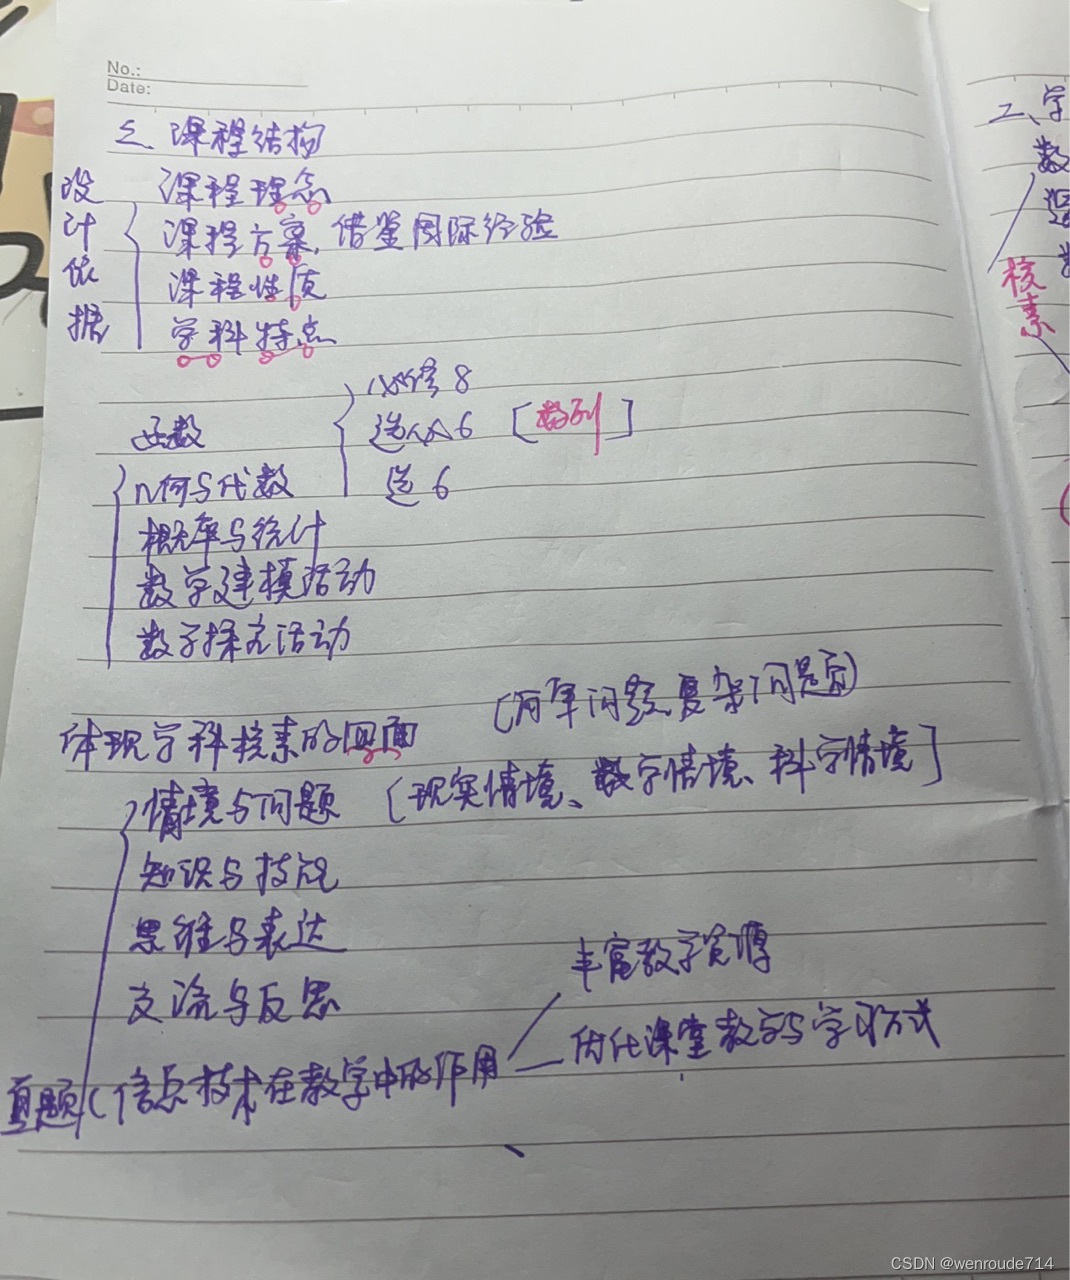 No.:
Date:
三、课程结构
设计依据
课程理念
课程方案,借鉴国际经验
课程性质
学科特点
函数
必修8
选必6 [数列]
选6
几何与代数
概率与统计
数学建模活动
数学探究活动
体现学科核素的四面
(简单问题、复杂问题)
情境与问题 [现实情境、数学情境、科学情境]
知识与技能
思维与表达
交流与反思
丰富教学资源
优化课堂教学与学习方式
真题(信息技术在教学中的作用
二、学
数
逻
核素
CSDN @wenroude714